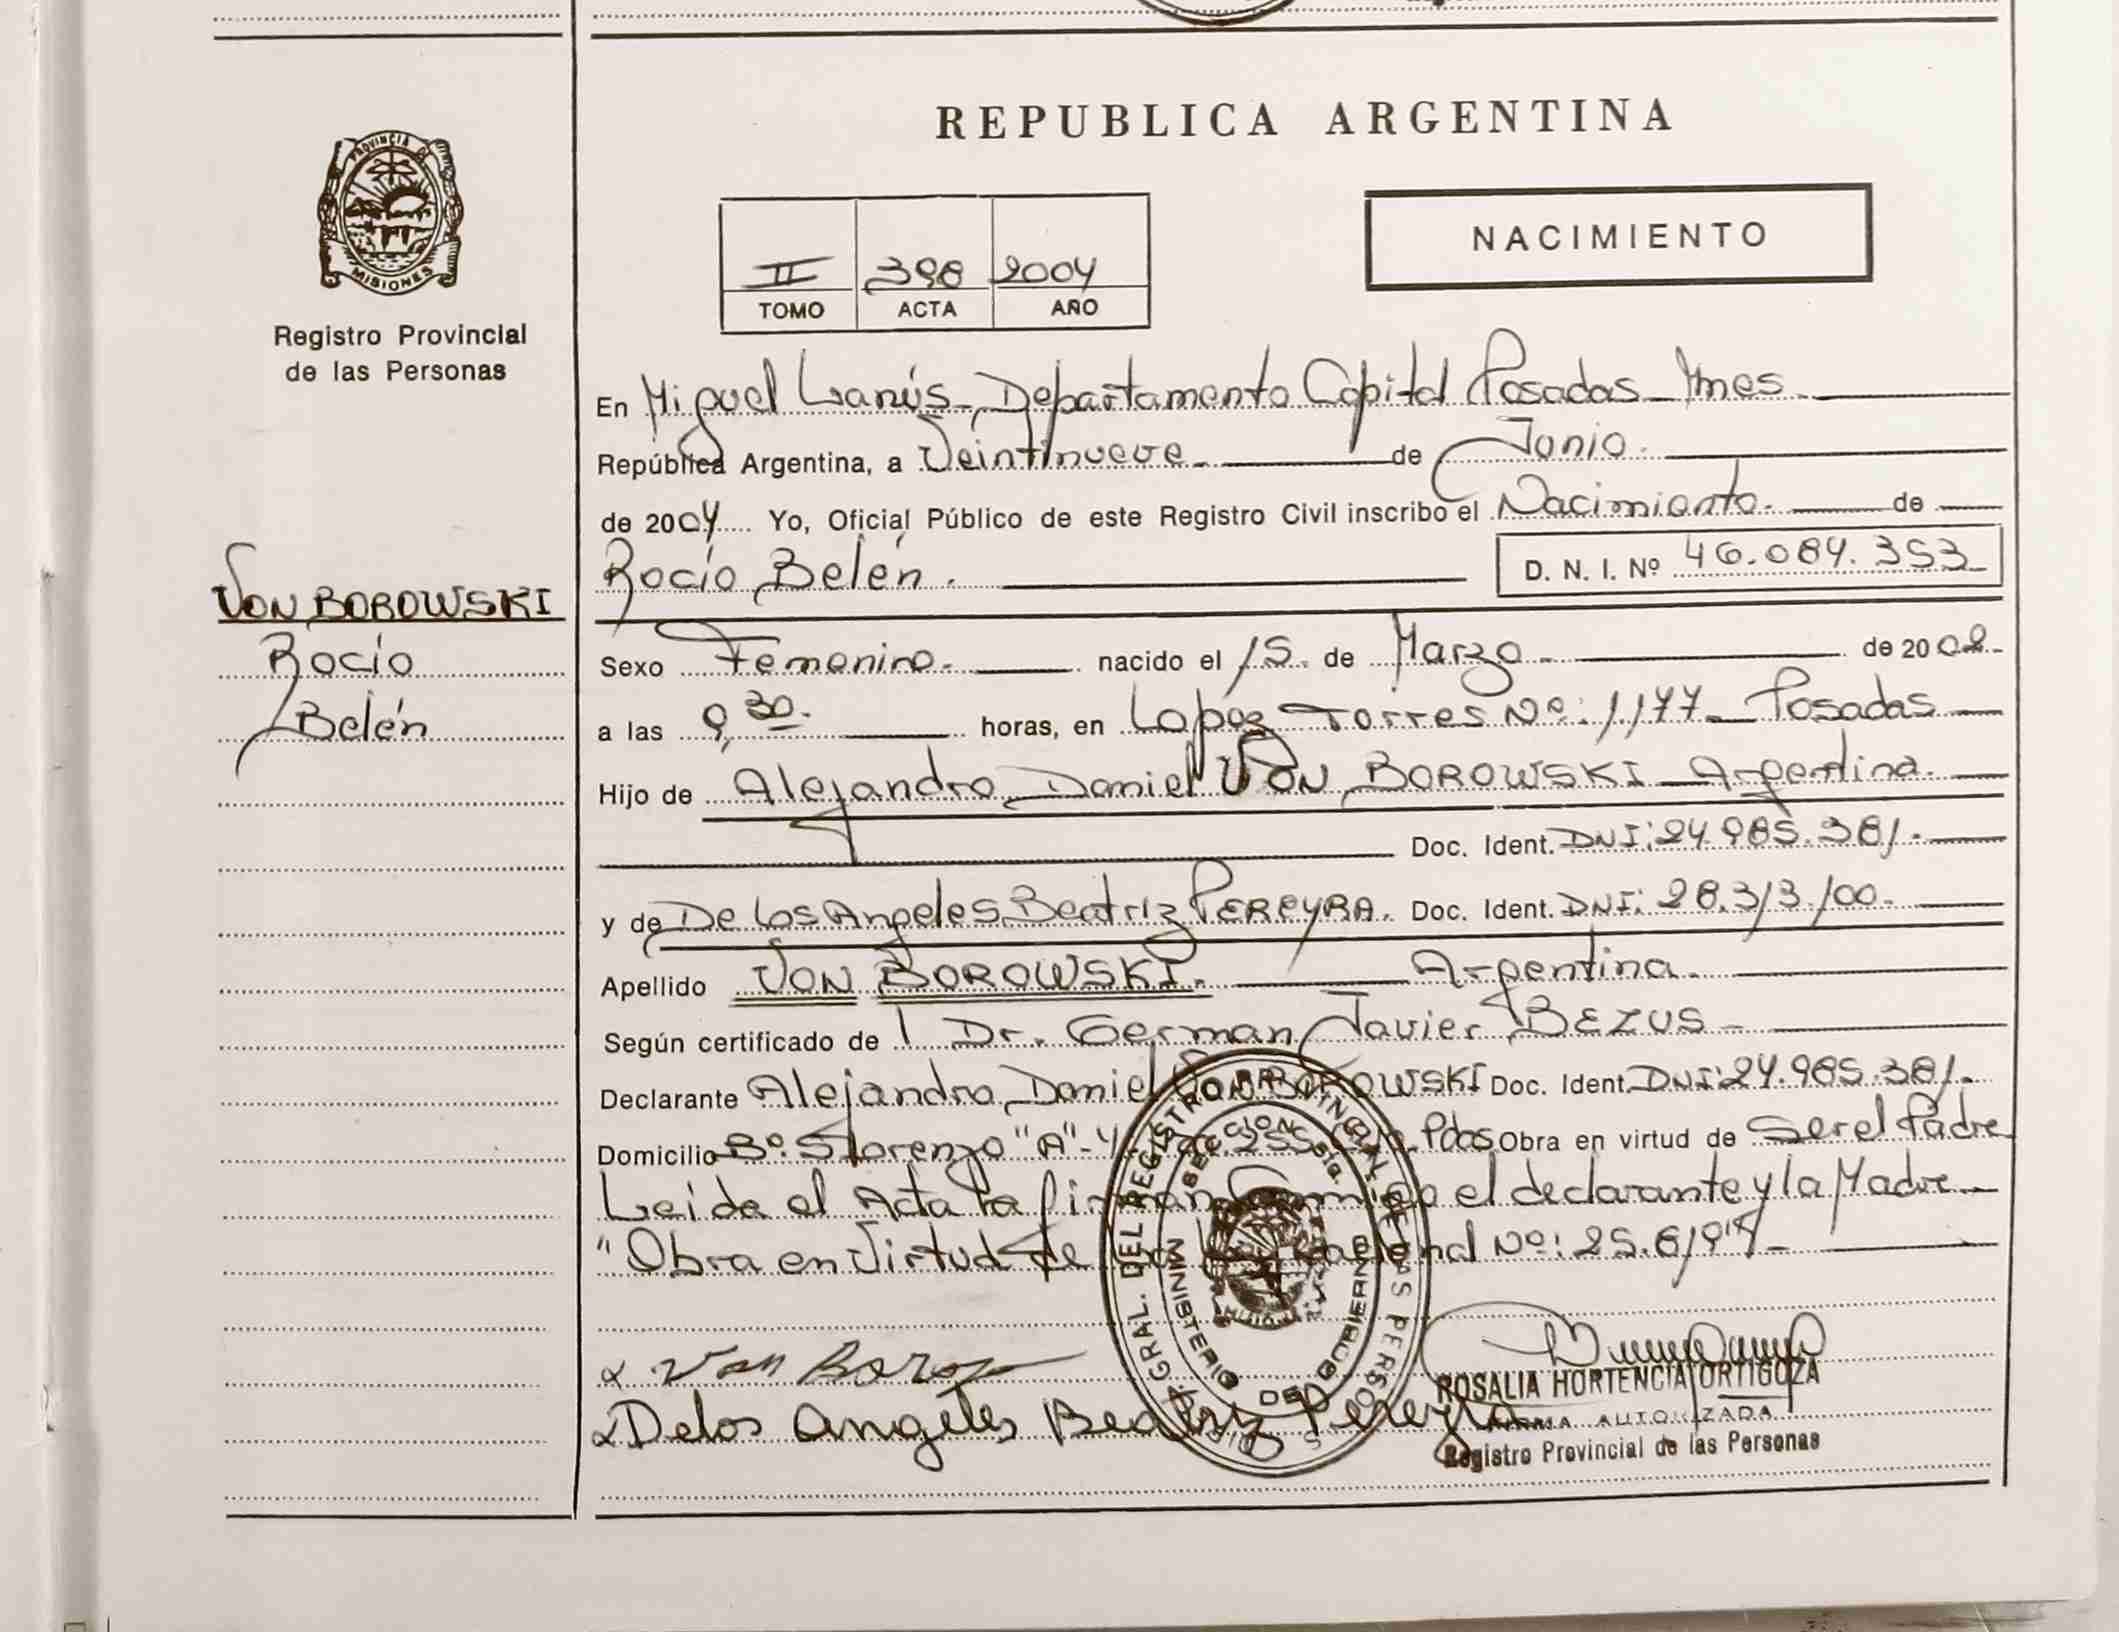 PROVINCIA DE
MISIONES
Registro Provincial
de las Personas
VON BOROWSKI
Rocío
Belén
REPUBLICA ARGENTINA
II 398 2004
TOMO ACTA AÑO
NACIMIENTO
En Miguel Lanús, Departamento Capital Posadas Mnes
República Argentina, a Veintinueve de Junio.
de 2004 Yo, Oficial Público de este Registro Civil inscribo el Nacimiento. de
Rocío Belén. D. N. I. Nº 46.084.353
Sexo Femenino. nacido el 15 de Marzo de 2002
a las 9,30. horas, en Lopez Torres Nº: 1,177 Posadas
Hijo de Alejandro Daniel VON BOROWSKI Argentina.
Doc. Ident. DNI: 24.985.381.
y de De los Angeles Beatriz PEREYRA. Doc. Ident. DNI: 28.313.100.
Apellido VON BOROWSKI. Argentina.
Según certificado de Dr. German Javier BEZUS
Declarante Alejandro Daniel VON BOROWSKI Doc. Ident. DNI: 24.985.381.
Domicilio Bº. S. Lorenzo "A" Pdas Obra en virtud de Ser el Padre
Leida el Acta la firman conmigo el declarante y la Madre
"Obra en Virtud de Nº: 25.819
DIR. GRAL. DEL REGISTRO PROVINCIAL DE LAS PERSONAS
MINISTERIO DE GOBIERNO
Von Borow
De los Angeles Beatriz Pereyra
ROSALIA HORTENCIA ORTIGOZA
FIRMA AUTORIZADA
Registro Provincial de las Personas